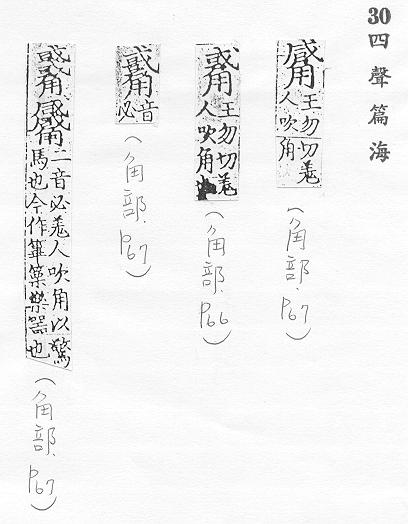 30 四聲篇海
王勿切羌
人吹角
(角部.P67)
王勿切羌
人吹角也
(角部.P66)
音
必
(角部.P67)
二音必羌人吹角以驚
馬也今作篳篥樂器也
(角部.P67)